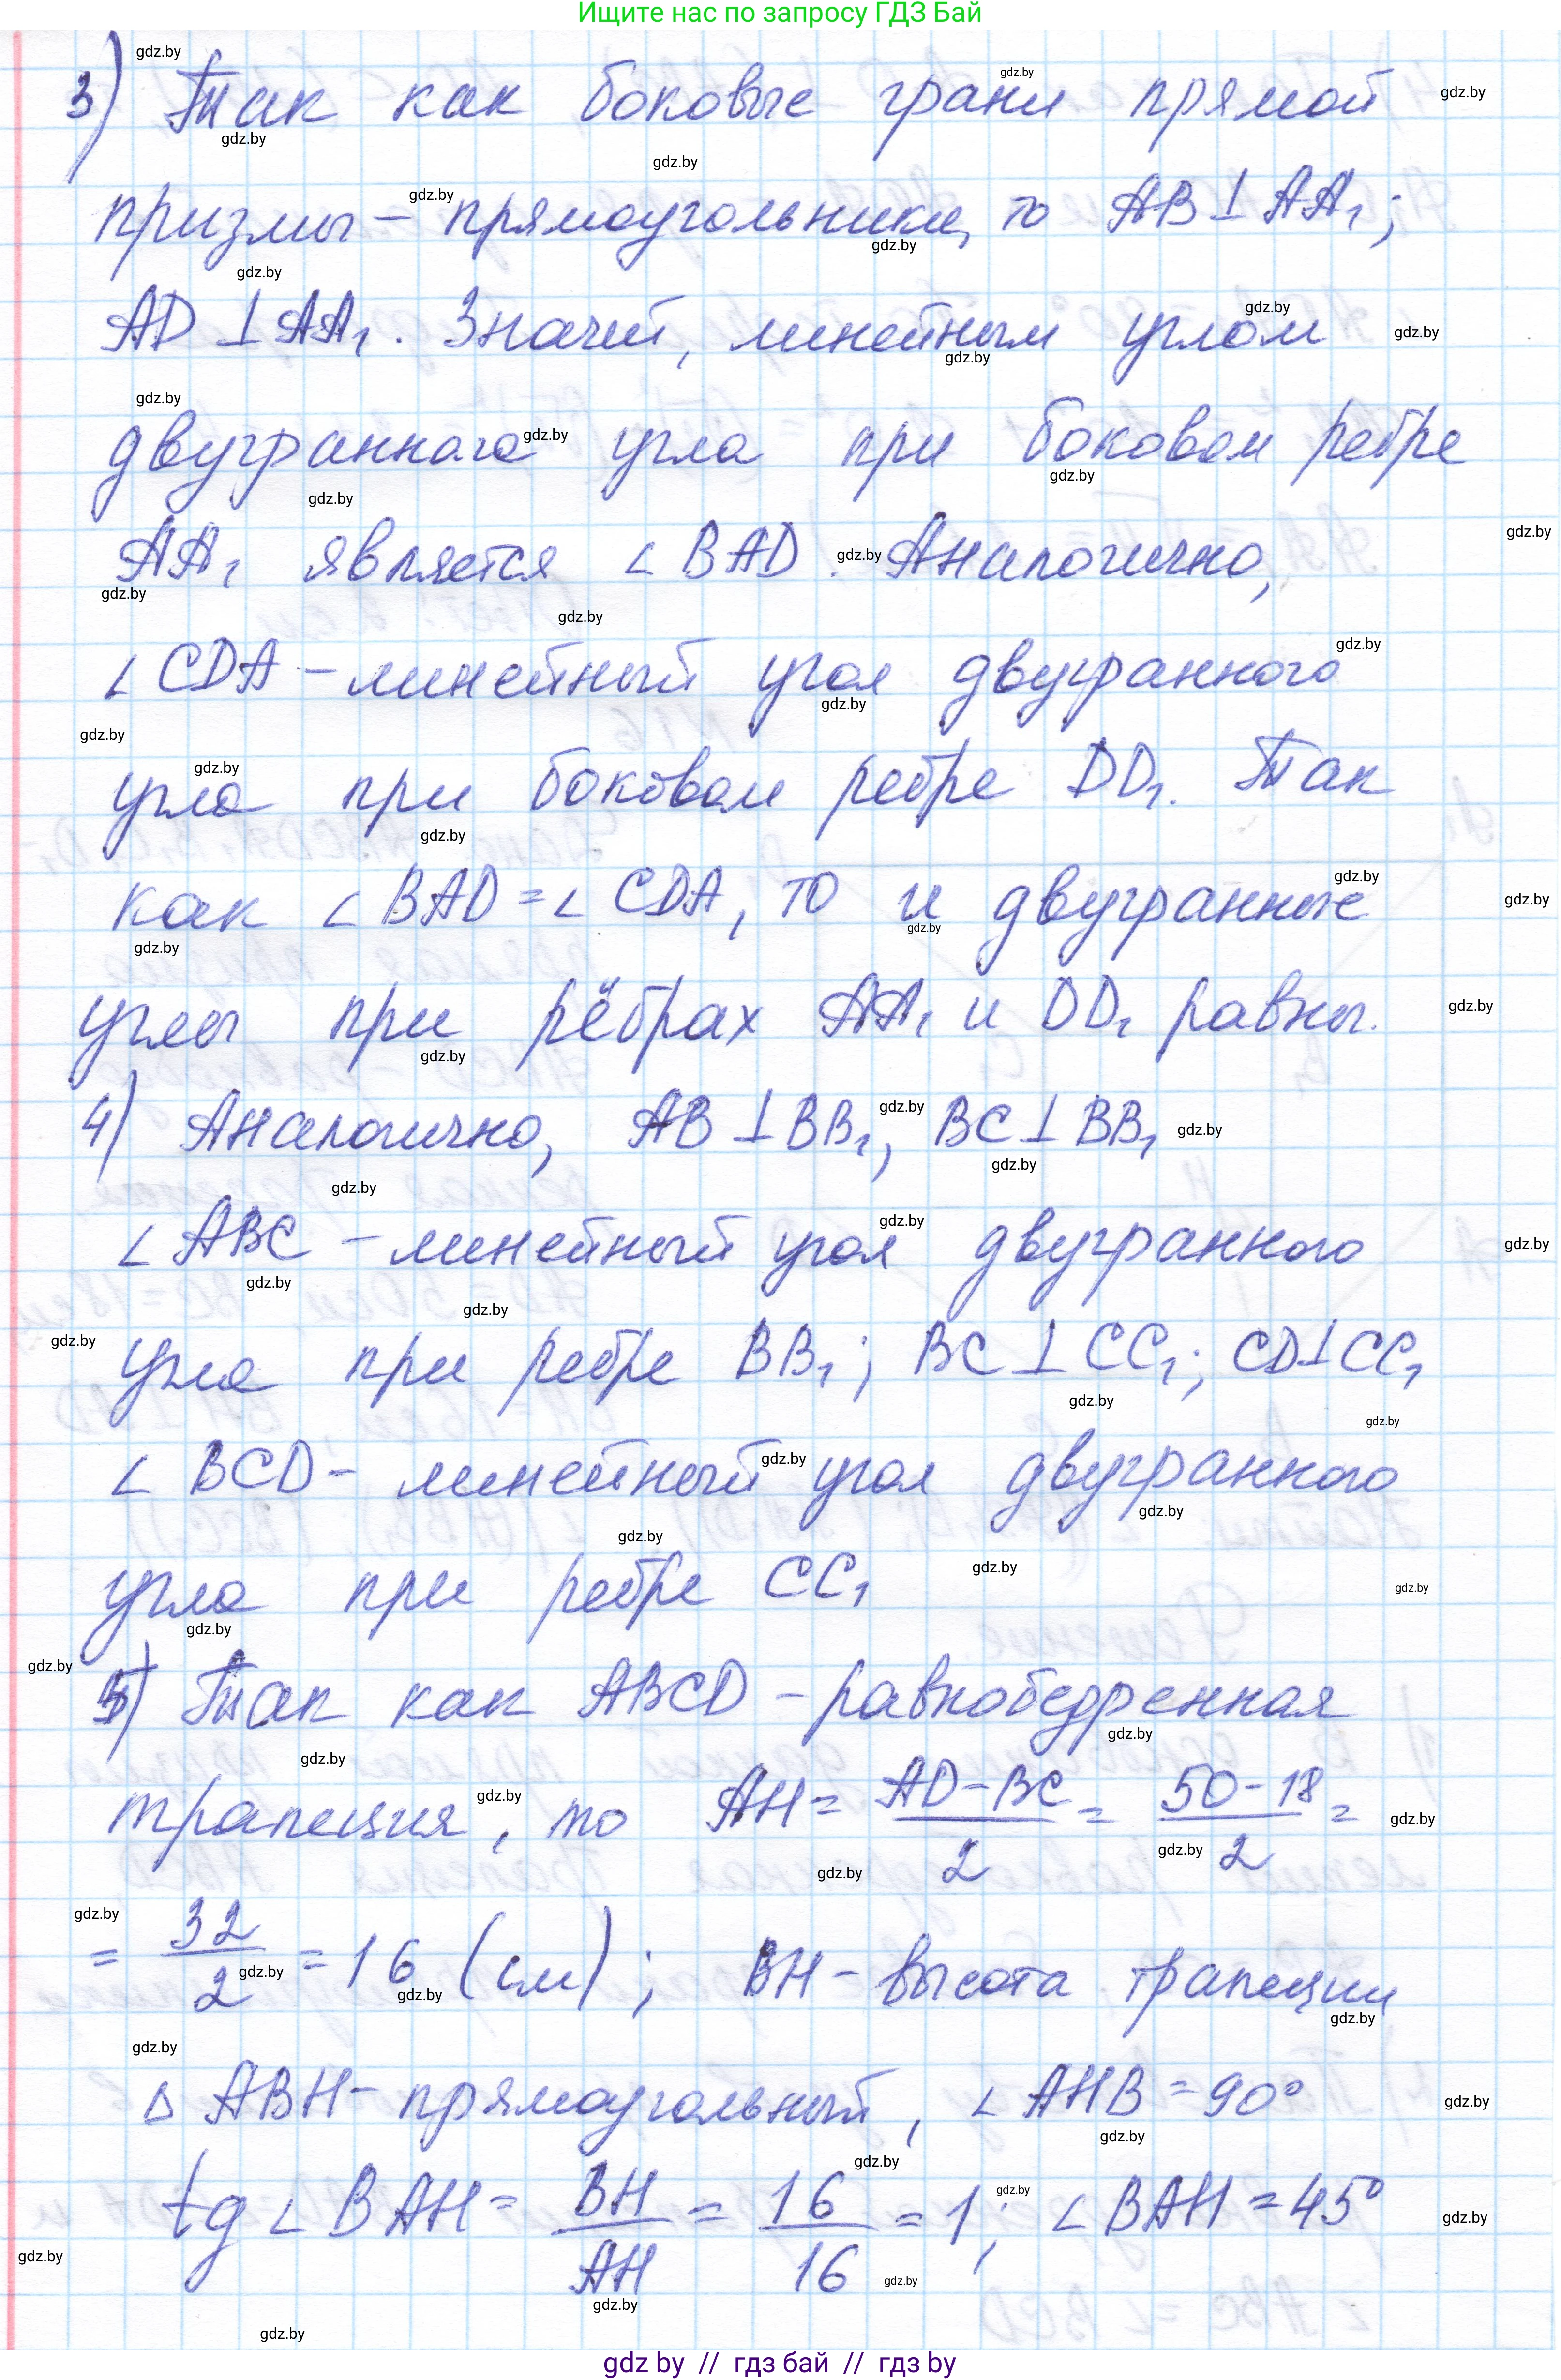 Ищите нас по запросу ГДЗ Бай
3) Так как боковые грани прямой
призмы – прямоугольники, то AB ⊥ AA₁;
AD ⊥ AA₁. Значит, линейным углом
двугранного угла при боковом ребре
AA₁ является ∠BAD. Аналогично,
∠CDA – линейный угол двугранного
угла при боковом ребре DD₁. Так
как ∠BAD = ∠CDA, то и двугранные
углы при рёбрах AA₁ и DD₁ равны.
4) Аналогично, AB ⊥ BB₁, BC ⊥ BB₁
∠ABC – линейный угол двугранного
угла при ребре BB₁; BC ⊥ CC₁; CD ⊥ CC₁
∠BCD – линейный угол двугранного
угла при ребре CC₁
5) Так как ABCD – равнобедренная
трапеция, то AH = (AD – BC)/2 = (50 – 18)/2 =
= 32/2 = 16 (см); BH – высота трапеции
Δ ABH – прямоугольный, ∠AHB = 90°
tg ∠BAH = BH/AH = 16/16 = 1; ∠BAH = 45°
gdz by // гдз бай // гдз by